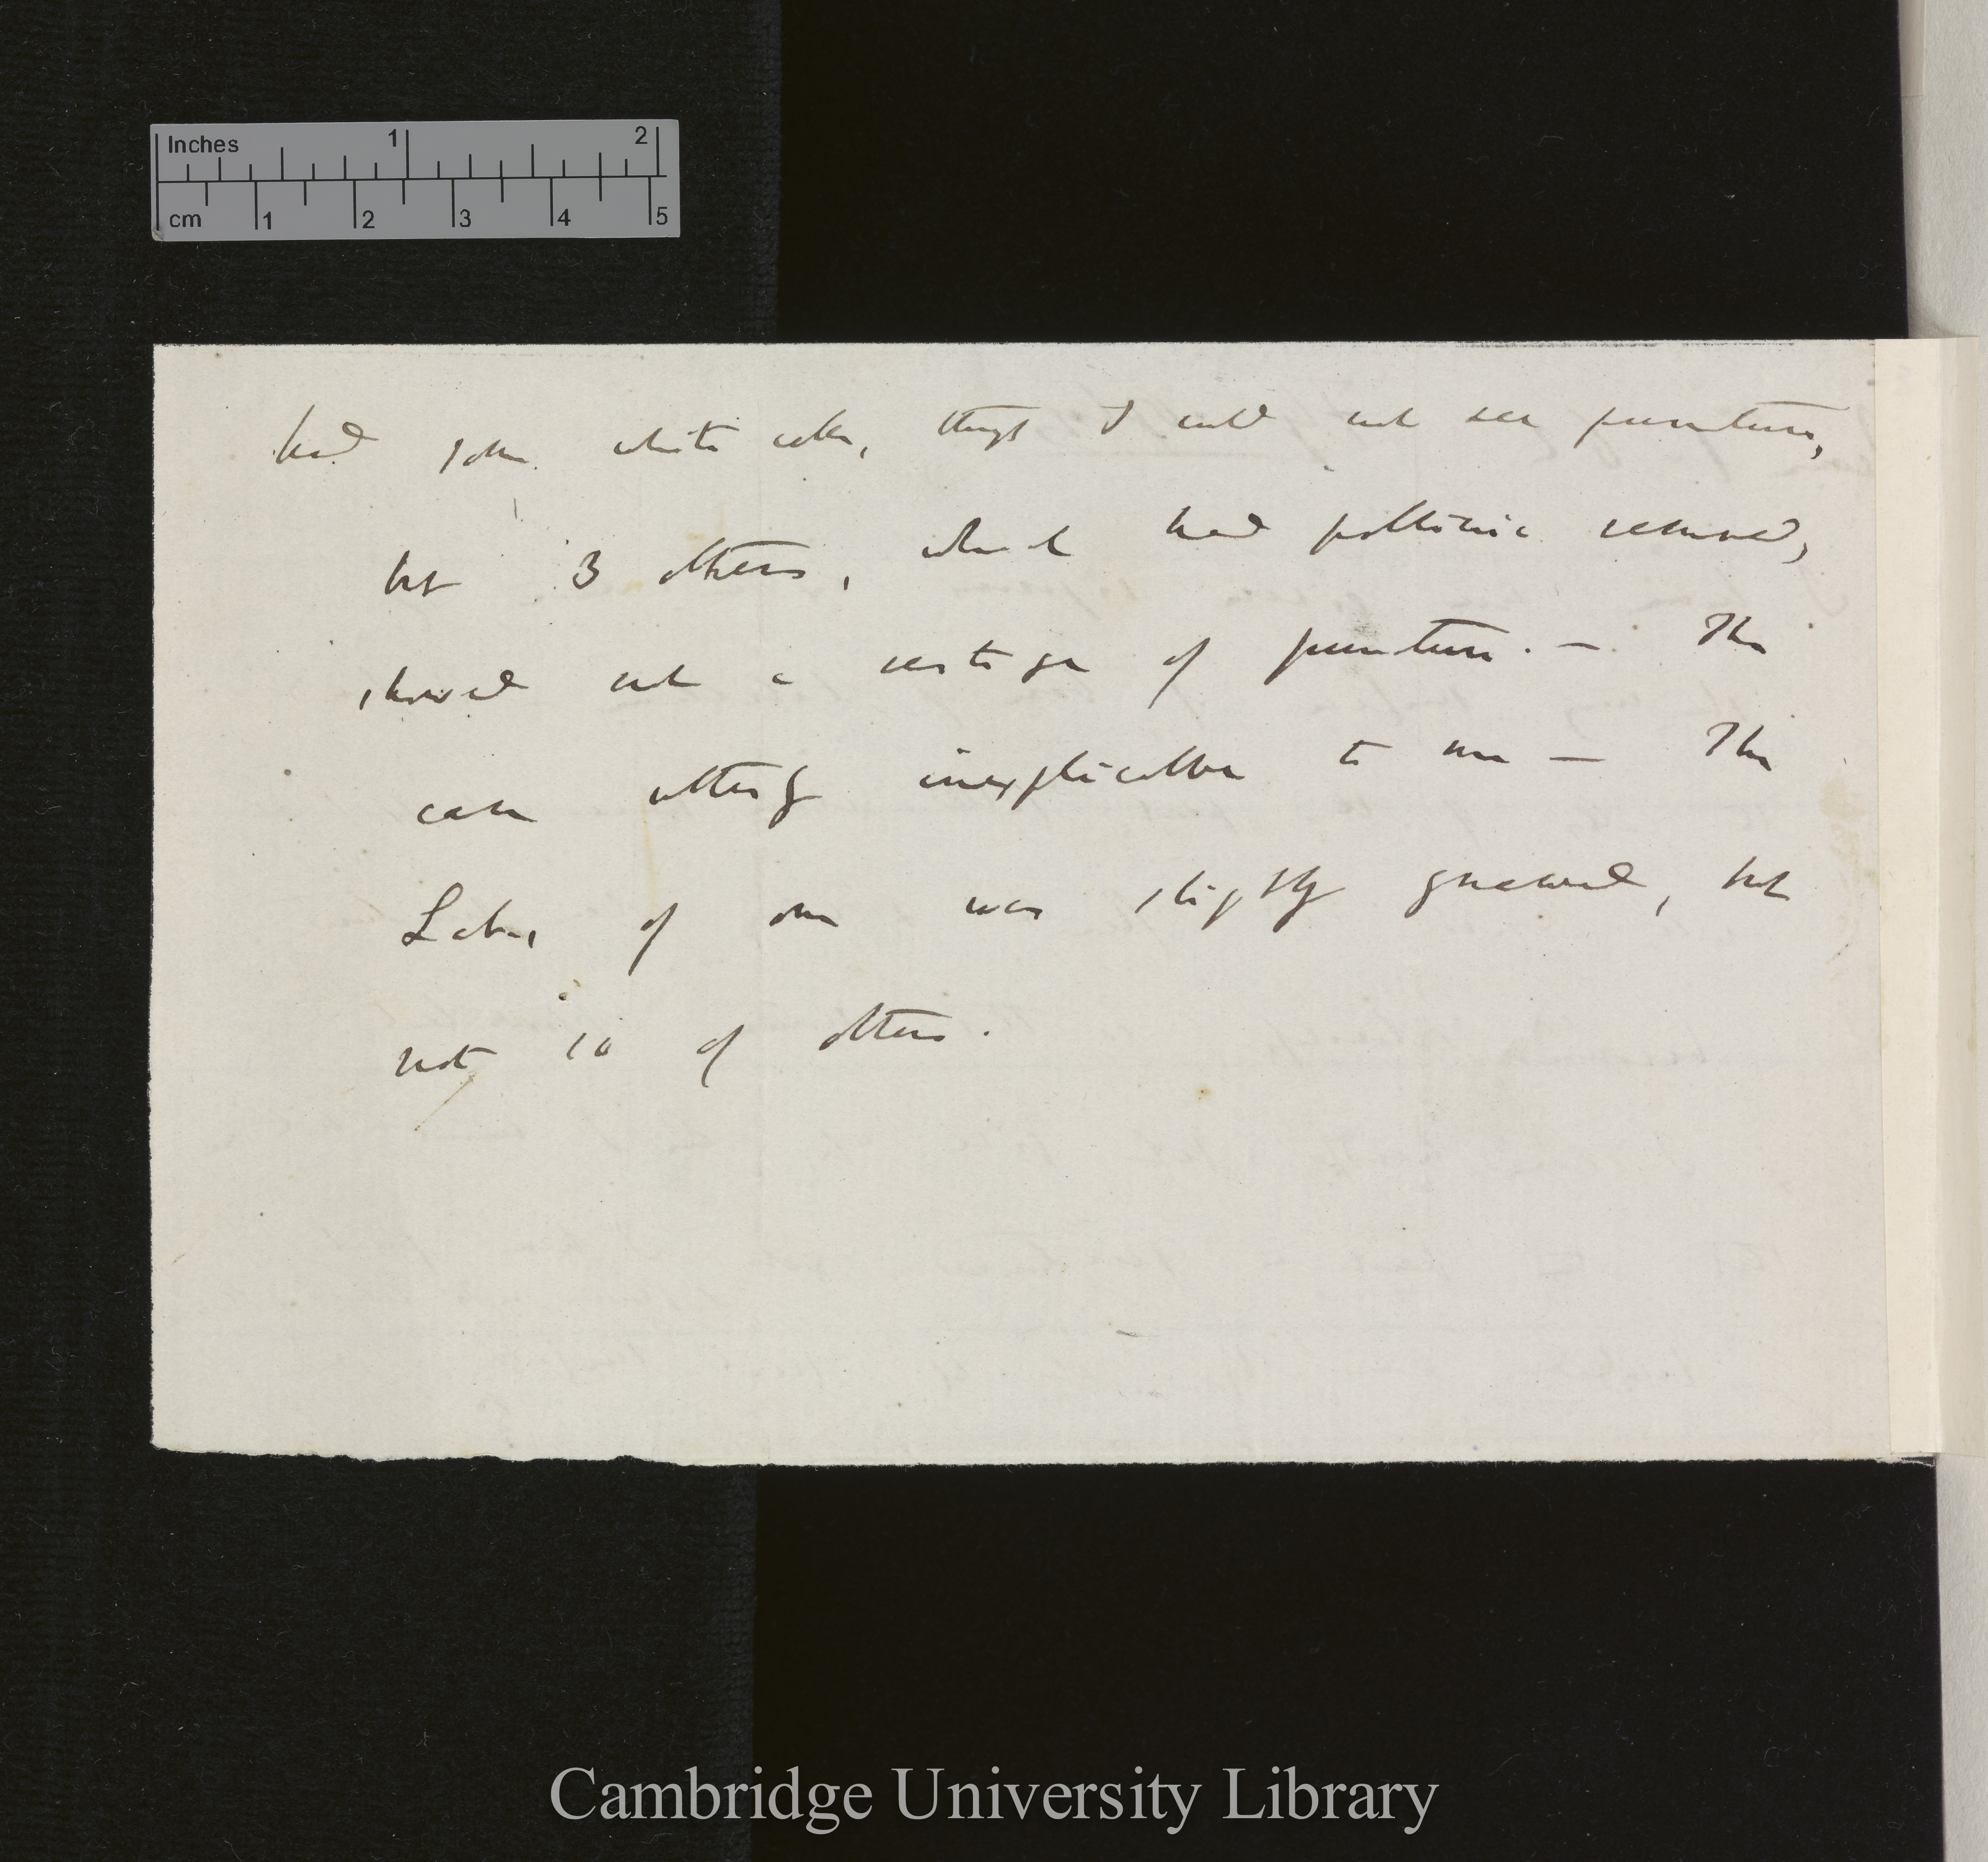 Inches 1 2
cm 1 2 3 4 5
had some white cells, though I could not see punctures,
but 3 others, which had pollinia removed,
showed not a vestige of puncture. — This
case utterly inexplicable to me — The
Label of one was slightly gnawed, but
not so of others.
Cambridge University Library